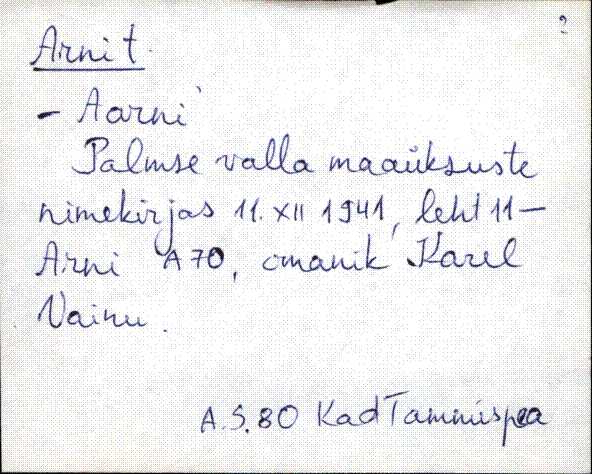 ?
Arni t.
- Aarni`
Palmse valla maaüksuste
nimekirjas 11. XII 1941, leht 11-
Arni A70, omanik Karel
Vainu.
A.S.80 Kad Tammispea